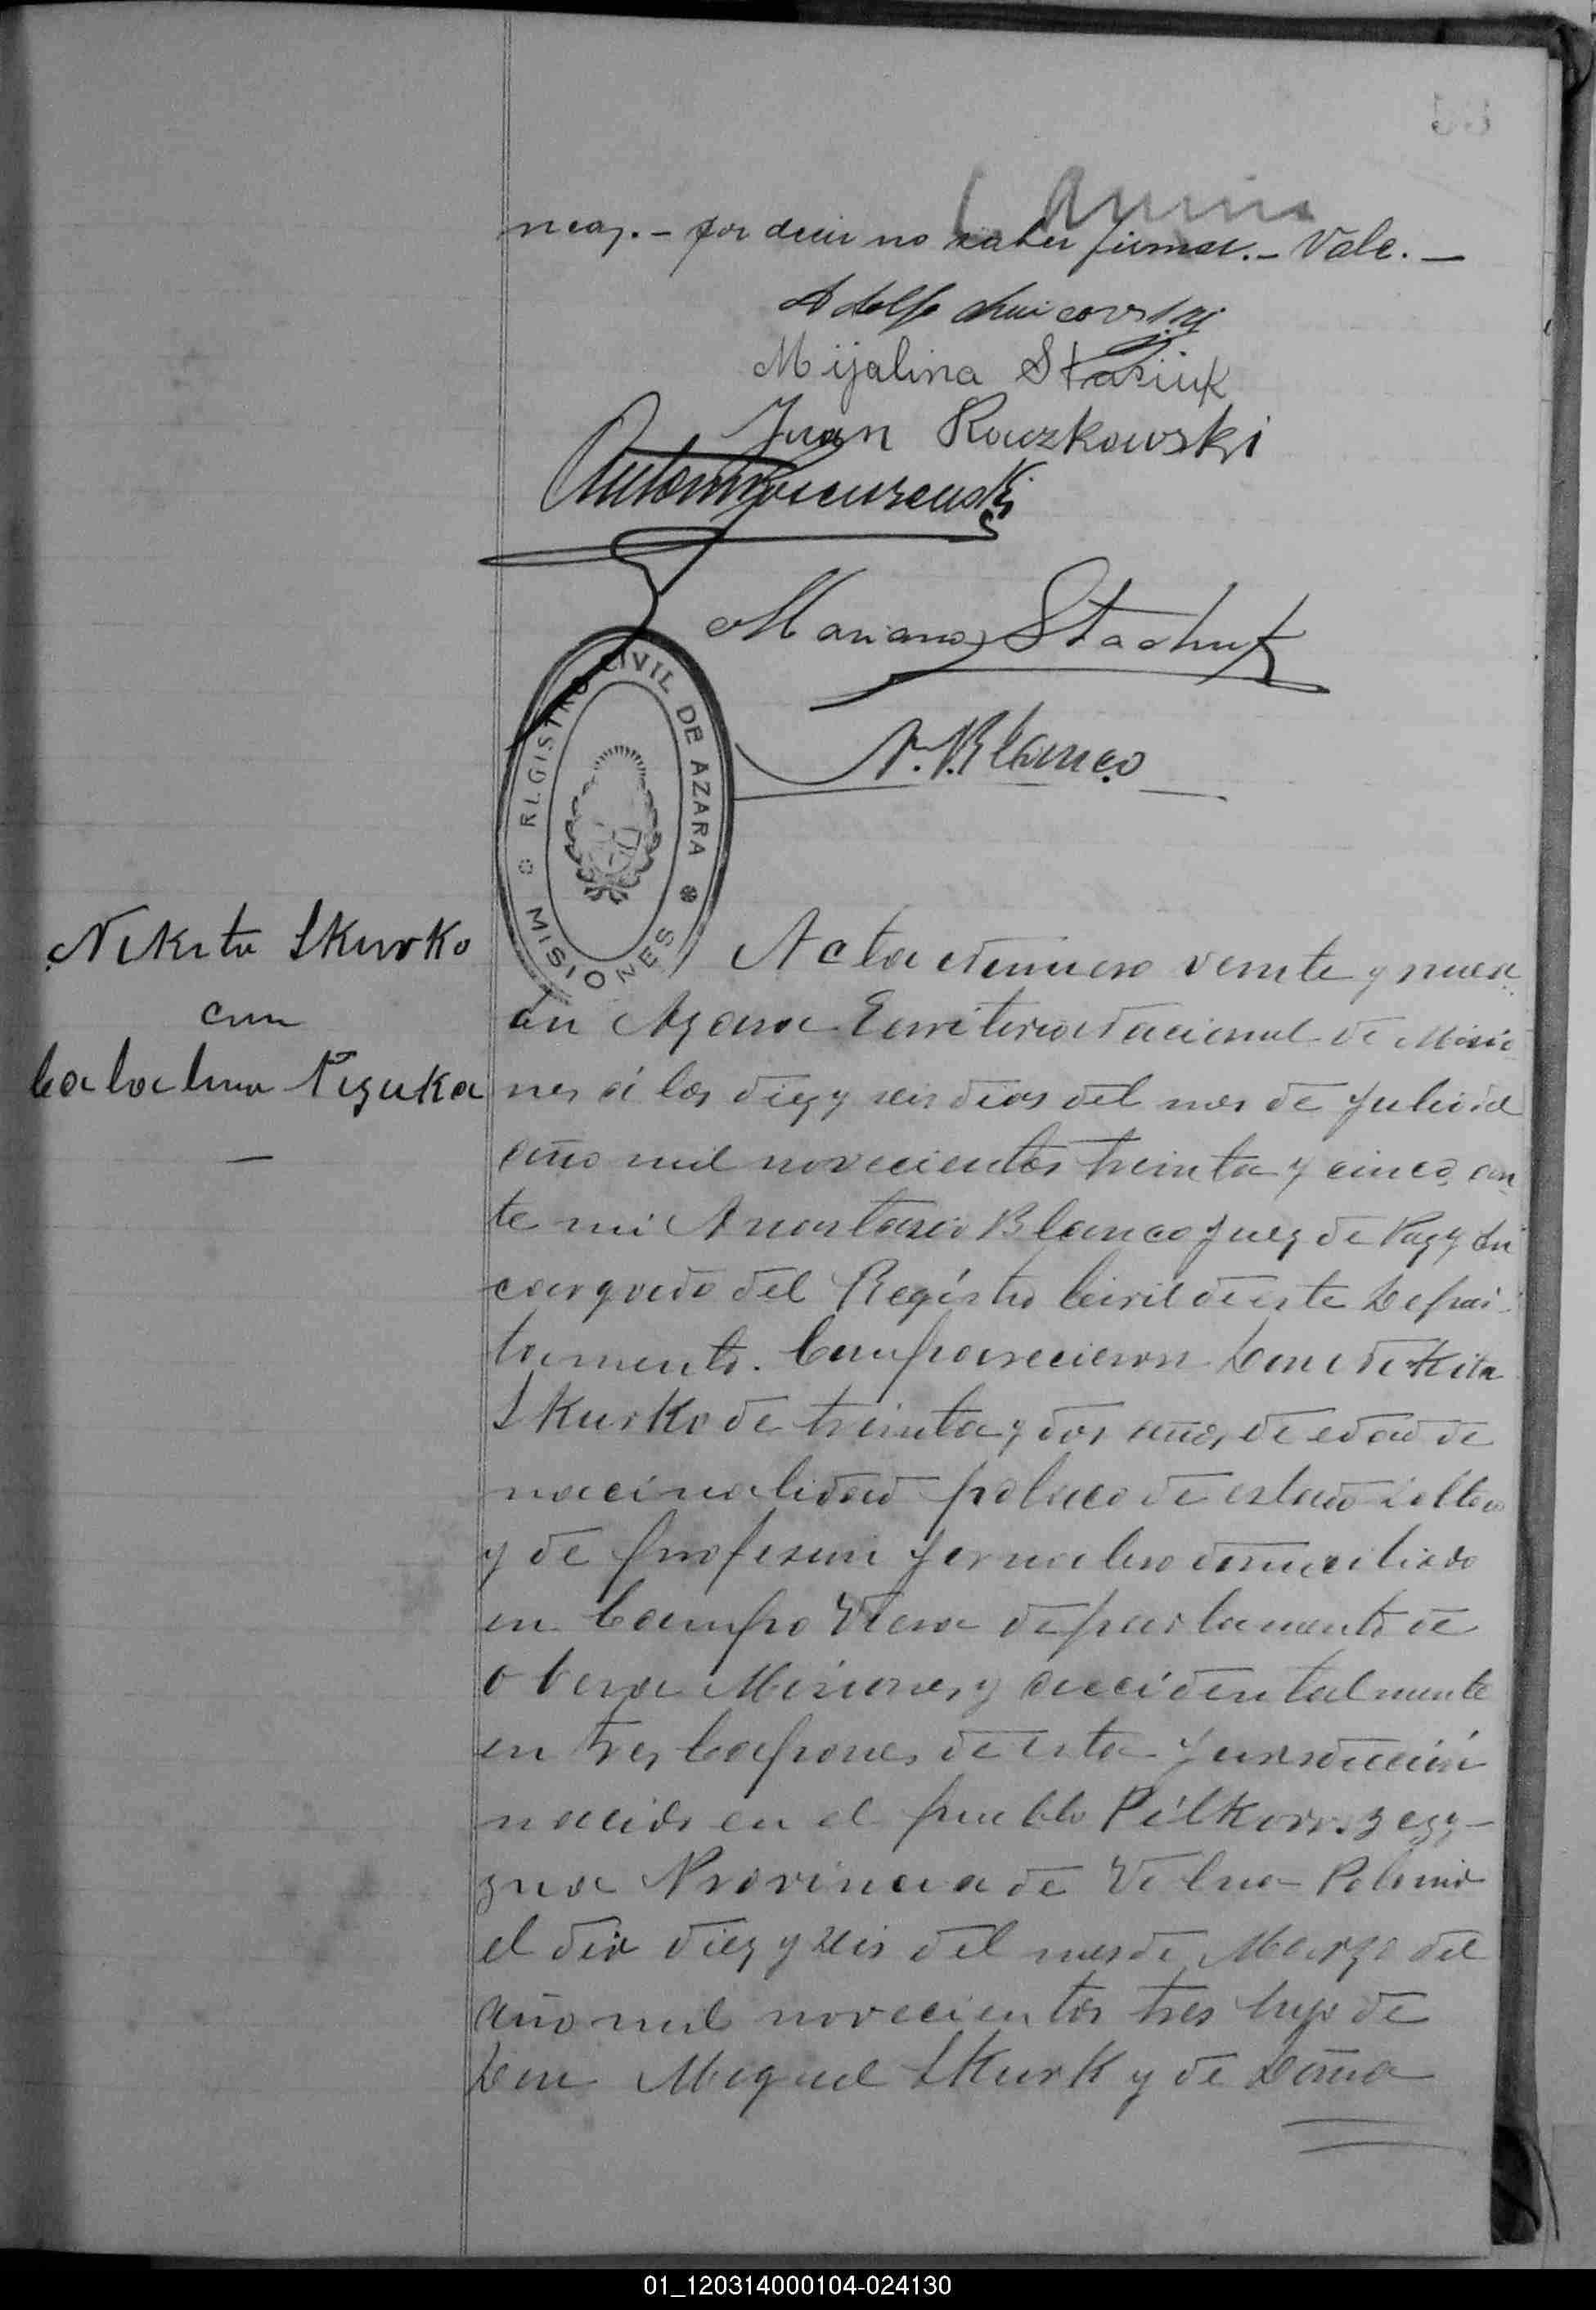 neas.- por decir no saber firmar.- Vale.-
Adolfo
Mijalina Stasiuk
Juan Kouzkowski
Mariano Stachuk
A. Blanco
REGISTRO CIVIL DE AZARA
MISIONES
Nikita Skurko
con
Catalina
Acta Numero veinte y nueve
En Azara Territorio Nacional de Misio
nes á los diez y seis dias del mes de Julio del
año mil novecientos treinta y cinco, an
te mi Anastasio Blanco Juez de Paz y En
cargado del Registro Civil de este Depar
tamento. Comparecieron Don Nikita
Skurko de treinta y dos años de edad de
nacionalidad polaco de estado soltero
y de profesion jornalero domiciliado
en Campo Viera departamento de
Obera Misiones y accidentalmente
en tres Capones de esta jurisdicción
nacido en el pueblo
Provincia de Vilna Polonia
el dia diez y seis del mes de Marzo del
año mil novecientos tres hijo de
Don Miguel Skurk y de Doña
01_120314000104-024130